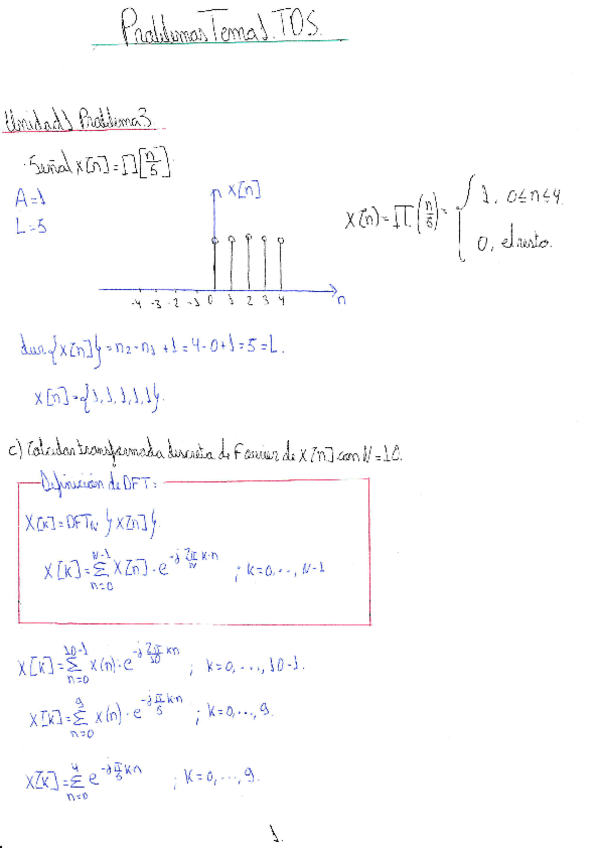 Problemas Tema 1. TDS.
Unidad 1 Problema 3
· Señal x[n] = ∏[n/5]
A=1
L=5
x[n]
x[n] = ∏(n/5) = { 1, 0≤n≤4.
0, el resto.
-4 -3 -2 -1 0 1 2 3 4 n
dur{x[n]} = n2 - n1 + 1 = 4-0+1 = 5 = L.
x[n] = {1,1,1,1,1}.
c) Calcular transformada discreta de Fourier de x[n] con N=10.
Definición de DFT:
X[k] = DFT_N {x[n]}
X[k] = Σ_{n=0}^{N-1} x[n]·e^{-j 2π/N k·n} ; k=0,..., N-1
X[k] = Σ_{n=0}^{10-1} x(n)·e^{-j 2π/10 kn} ; k=0,...,10-1.
X[k] = Σ_{n=0}^{9} x(n)·e^{-j π/5 k·n} ; k=0,...,9.
X[k] = Σ_{n=0}^{4} e^{-j π/5 k·n} ; k=0,...,9.
1.